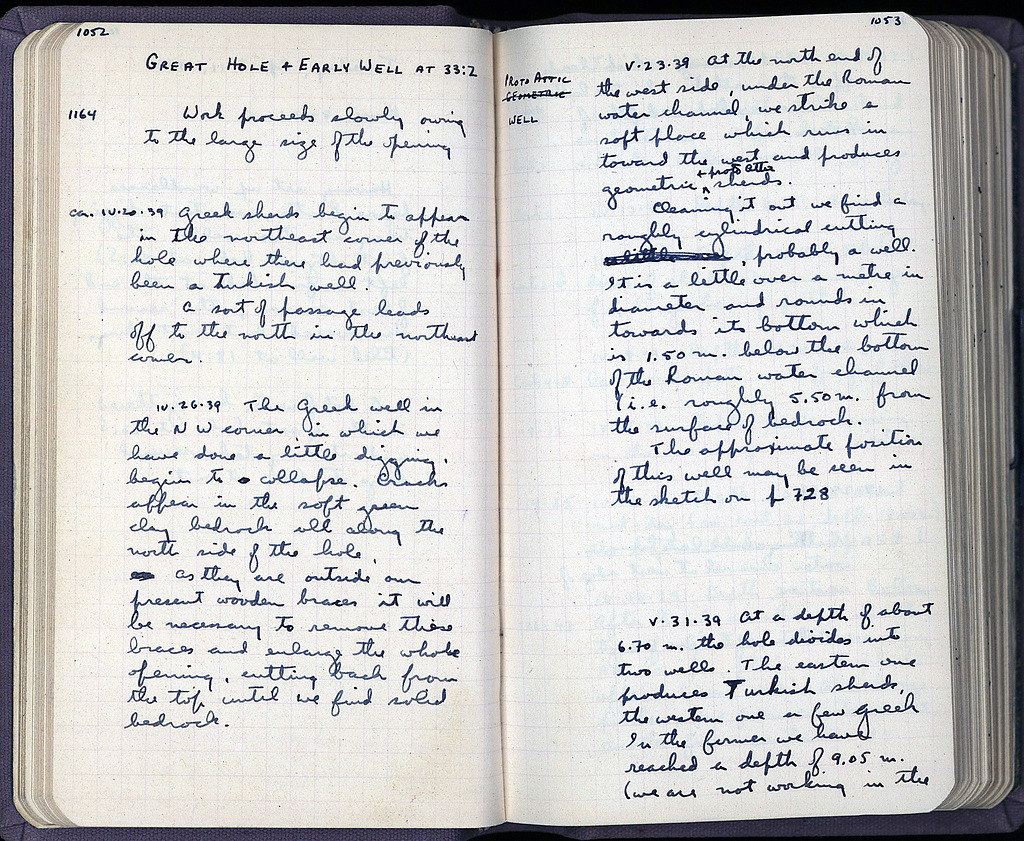 1052
GREAT HOLE + EARLY WELL AT 33:2
1164
Work proceeds slowly owing
to the large size of the opening
ca. IV.20.39 Greek sherds begin to appear
in the northeast corner of the
hole where there had previously
been a Turkish well
A sort of passage leads
off to the north in the northeast
corner
IV.26.39 The Greek well in
the NW corner, in which we
have done a little digging,
begin to collapse. Cracks
appear in the soft green
clay bedrock all along the
north side of the hole,
as they are outside our
present wooden braces it will
be necessary to remove these
braces and enlarge the whole
opening, cutting back from
the top until we find solid
bedrock.
1053
PROTO ATTIC
GEOMETRIC
WELL
V.23.39 At the north end of
the west side, under the Roman
water channel, we strike a
soft place which runs in
toward the west and produces
+ proto Attic
geometric ^ sherds.
Cleaning it out we find a
roughly cylindrical cutting
, probably a well.
It is a little over a metre in
diameter and rounds in
towards its bottom which
is 1.50 m. below the bottom
of the Roman water channel
(i.e. roughly 5.50 m. from
the surface of bedrock.
The approximate position
of this well may be seen in
the sketch on p 728
V.31.39 At a depth of about
6.70 m. the hole divides into
two wells. The eastern one
produces Turkish sherds,
the western one a few Greek
In the former we have
reached a depth of 9.05 m.
(we are not working in the